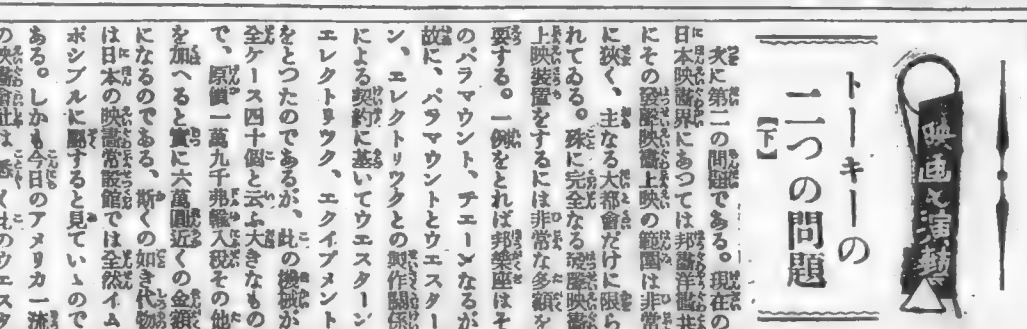 映画と演芸
トーキーの
二つの問題
【下】
次に第二の問題である。現在の
日本映畵界にあつては邦畵洋畵共
にその發聲映畵上映の範圍は非常
に狹く、主なる大都會だけに限ら
れてゐる。殊に完全なる發聲映畵
上映裝置をするには非常な多額を
要する。一例をとれば邦樂座はそ
のパラマウント、チエーンなるが
故に、パラマウントとウエスター
ン、エレクトリツクとの製作關係
による契約に基いてウエスターン
エレクトリツク、エクイプメント
をとつたのであるが、此の機械が
全ケース四十個と云ふ大きなもの
で、原價一萬九千弗輸入税その他
を加へると實に六萬圓近くの金額
になるのである、斯くの如き代物
は日本の映畵常設館では全然イム
ポシブルに屬すると見ていゝので
ある。しかも今日のアメリカ一流
の映畵會社は悉く此のウエスタ